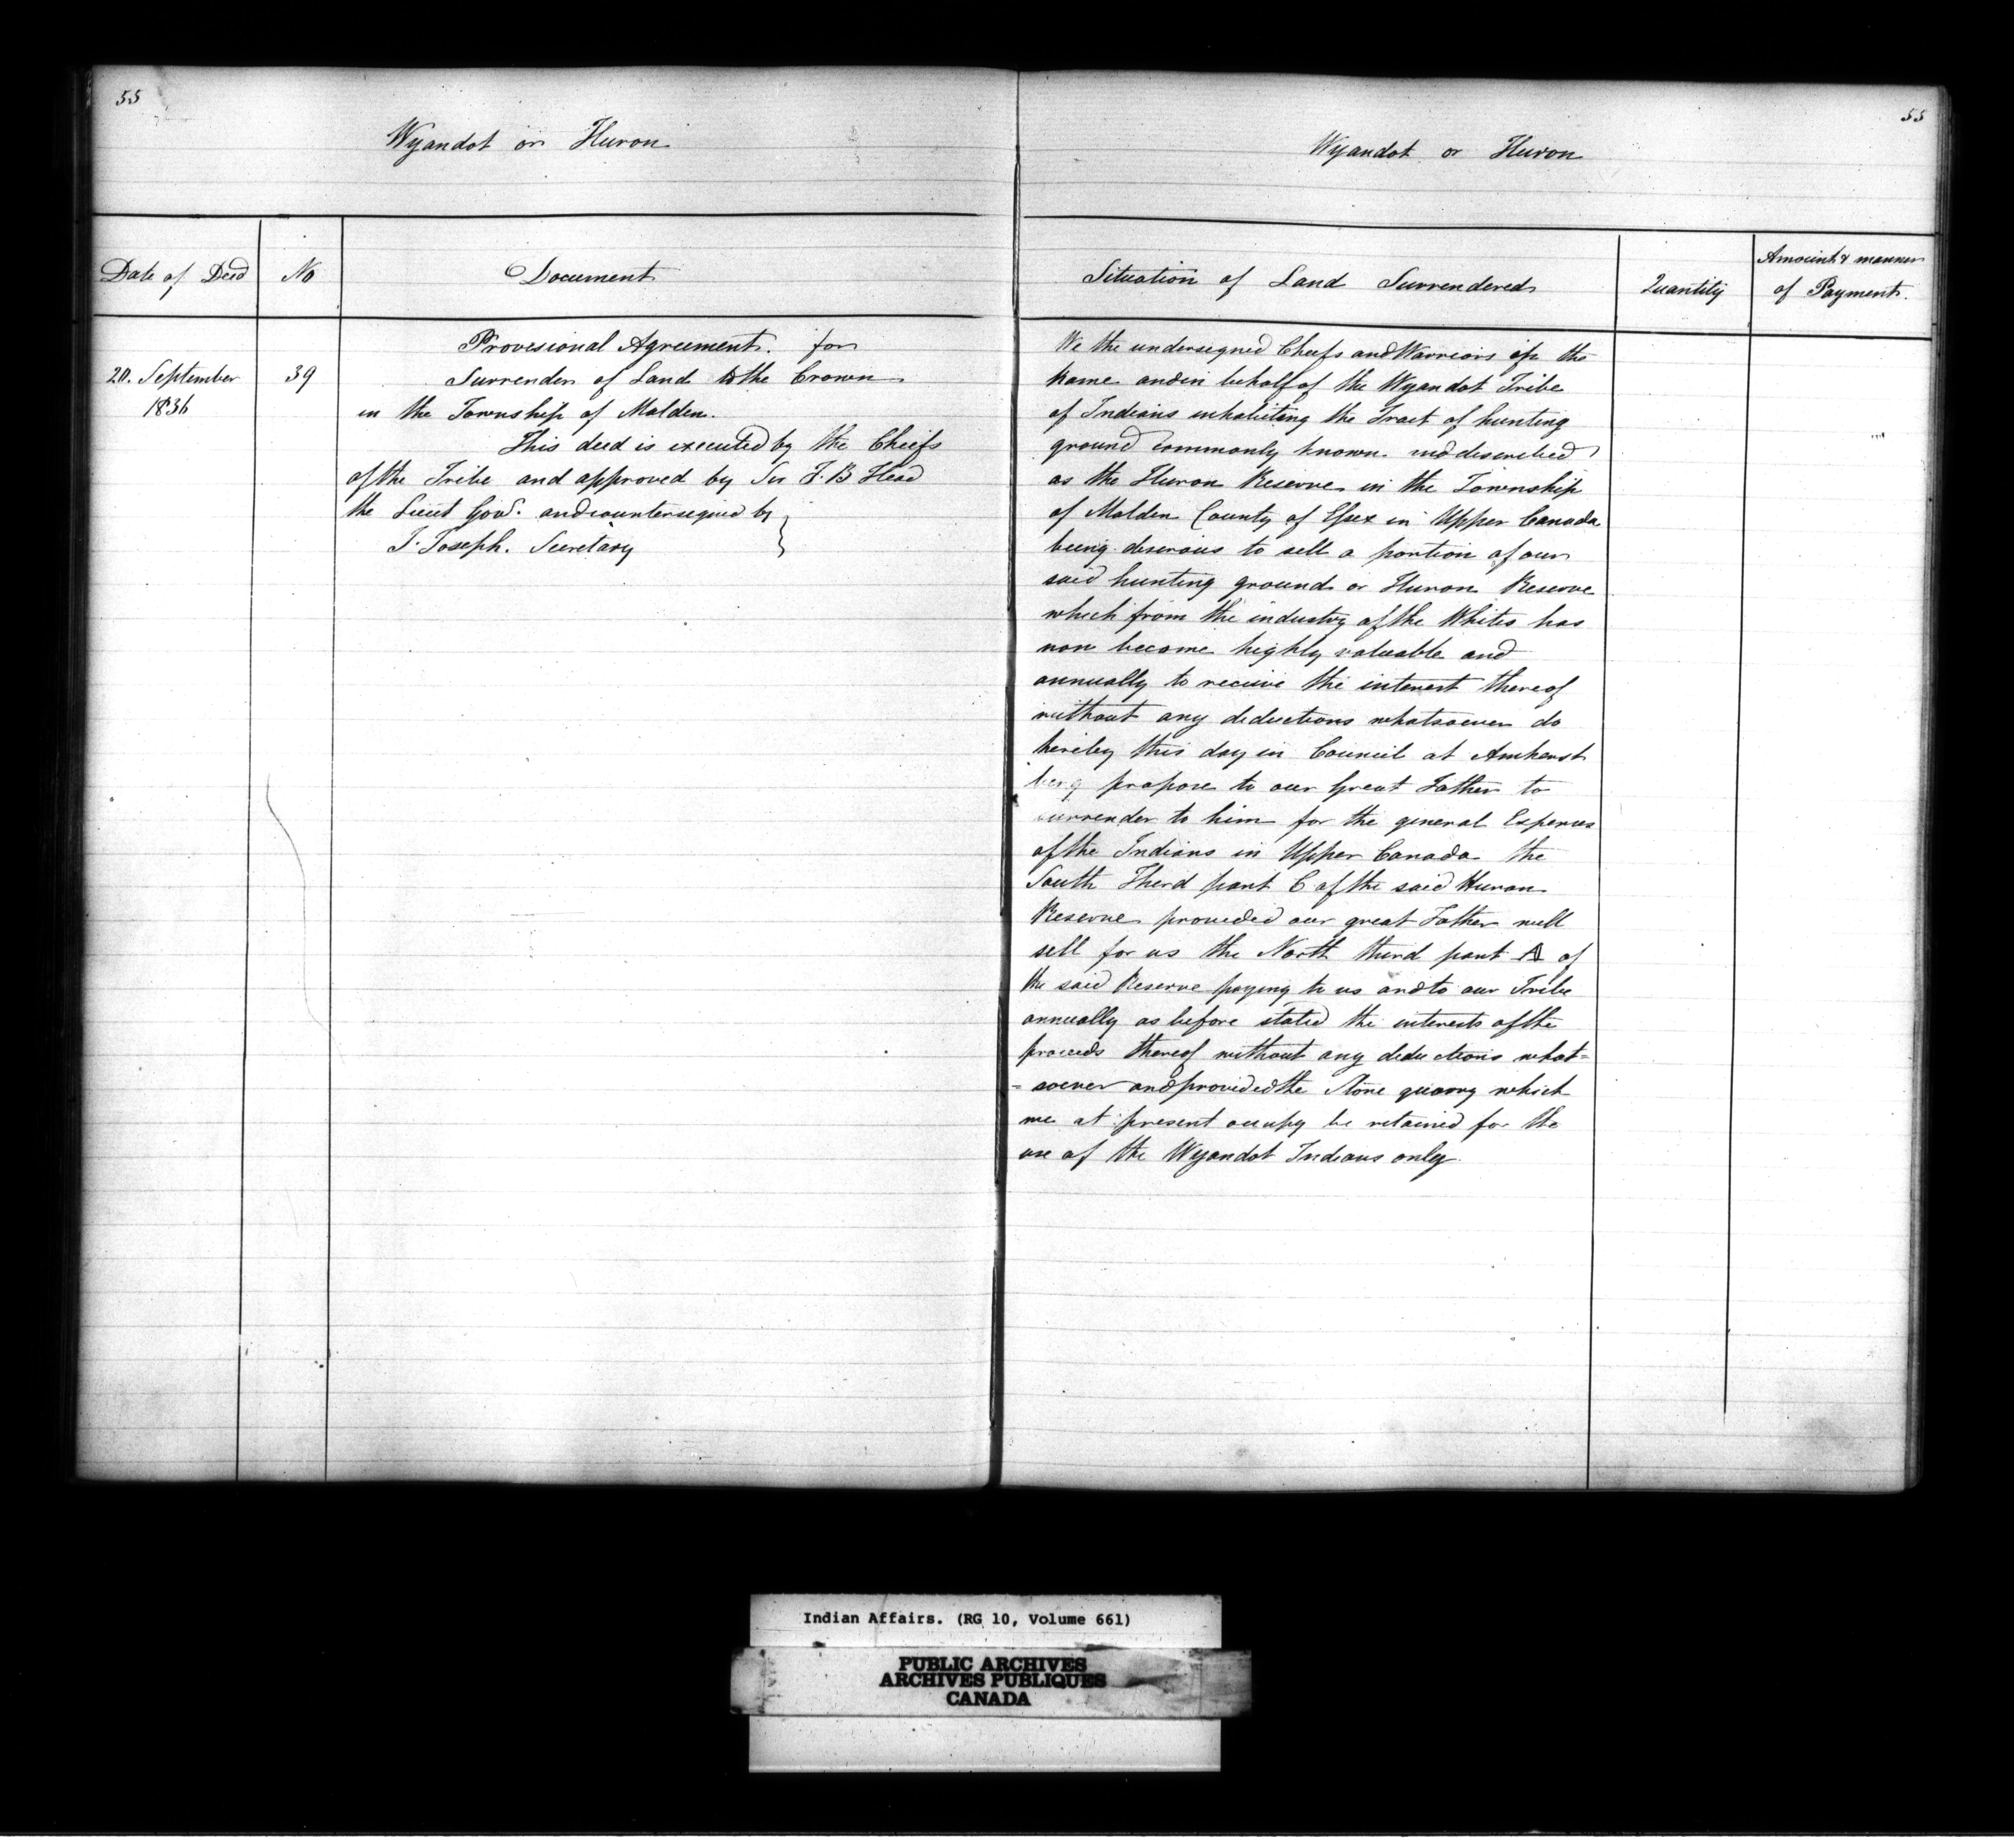 55
Wyandot or Huron
Date of Deed
No
Document
20. September
1836
39
Provisional Agreement. for
Surrender of Land to the Crown
in the Township of Malden.
This deed is executed by the Chiefs
of the Tribe and approved by Sir F. B Head
the Lieut Gov.r and countersigned by
J. Joseph. Secretary
55
Wyandot or Huron
Situation of Land Surrendered
Quantity
Amount & manner
of Payment.
We the undersigned Chiefs and Warriors in the
name and in behalf of the Wyandot Tribe
of Indians inhabiting the Tract of hunting
ground commonly known and described
as the Huron Reserve in the Township
of Malden County of Essex in Upper Canada
being desirous to sell a portion of our
said hunting ground or Huron Reserve
which from the industry of the Whites has
now become highly valuable and
annually to receive the interest thereof
without any deductions whatsoever do
hereby this day in Council at Amherst
berg propose to our Great Father to
surrender to him for the general Expenses
of the Indians in Upper Canada the
South Third part C of the said Huron
Reserve provided our great Father will
sell for us the North third part A of
the said Reserve paying to us and to our Tribe
annually as before stated the interests of the
proceeds thereof without any deductions what=
= soever and provided the Stone quarry which
we at present occupy be retained for the
use of the Wyandot Indians only.
Indian Affairs. (RG 10, Volume 661)
PUBLIC ARCHIVES
ARCHIVES PUBLIQUES
CANADA